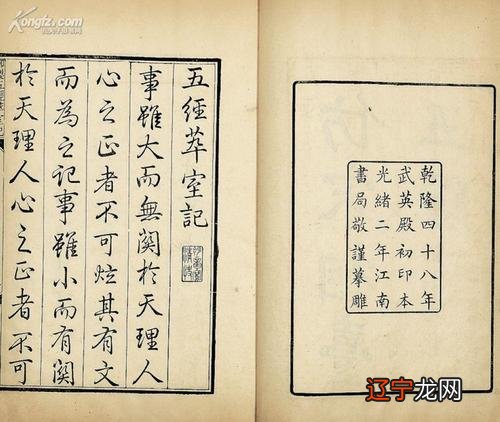 乾隆四十八年
武英殿初印本
光緒二年江南
書局敬謹摹雕
五經萃室記
事雖大而無關於天理人
心之正者不可炫其有文
而為之記事雖小而有關
於天理人心之正者不可
Kongfz.com
辽宁龙网